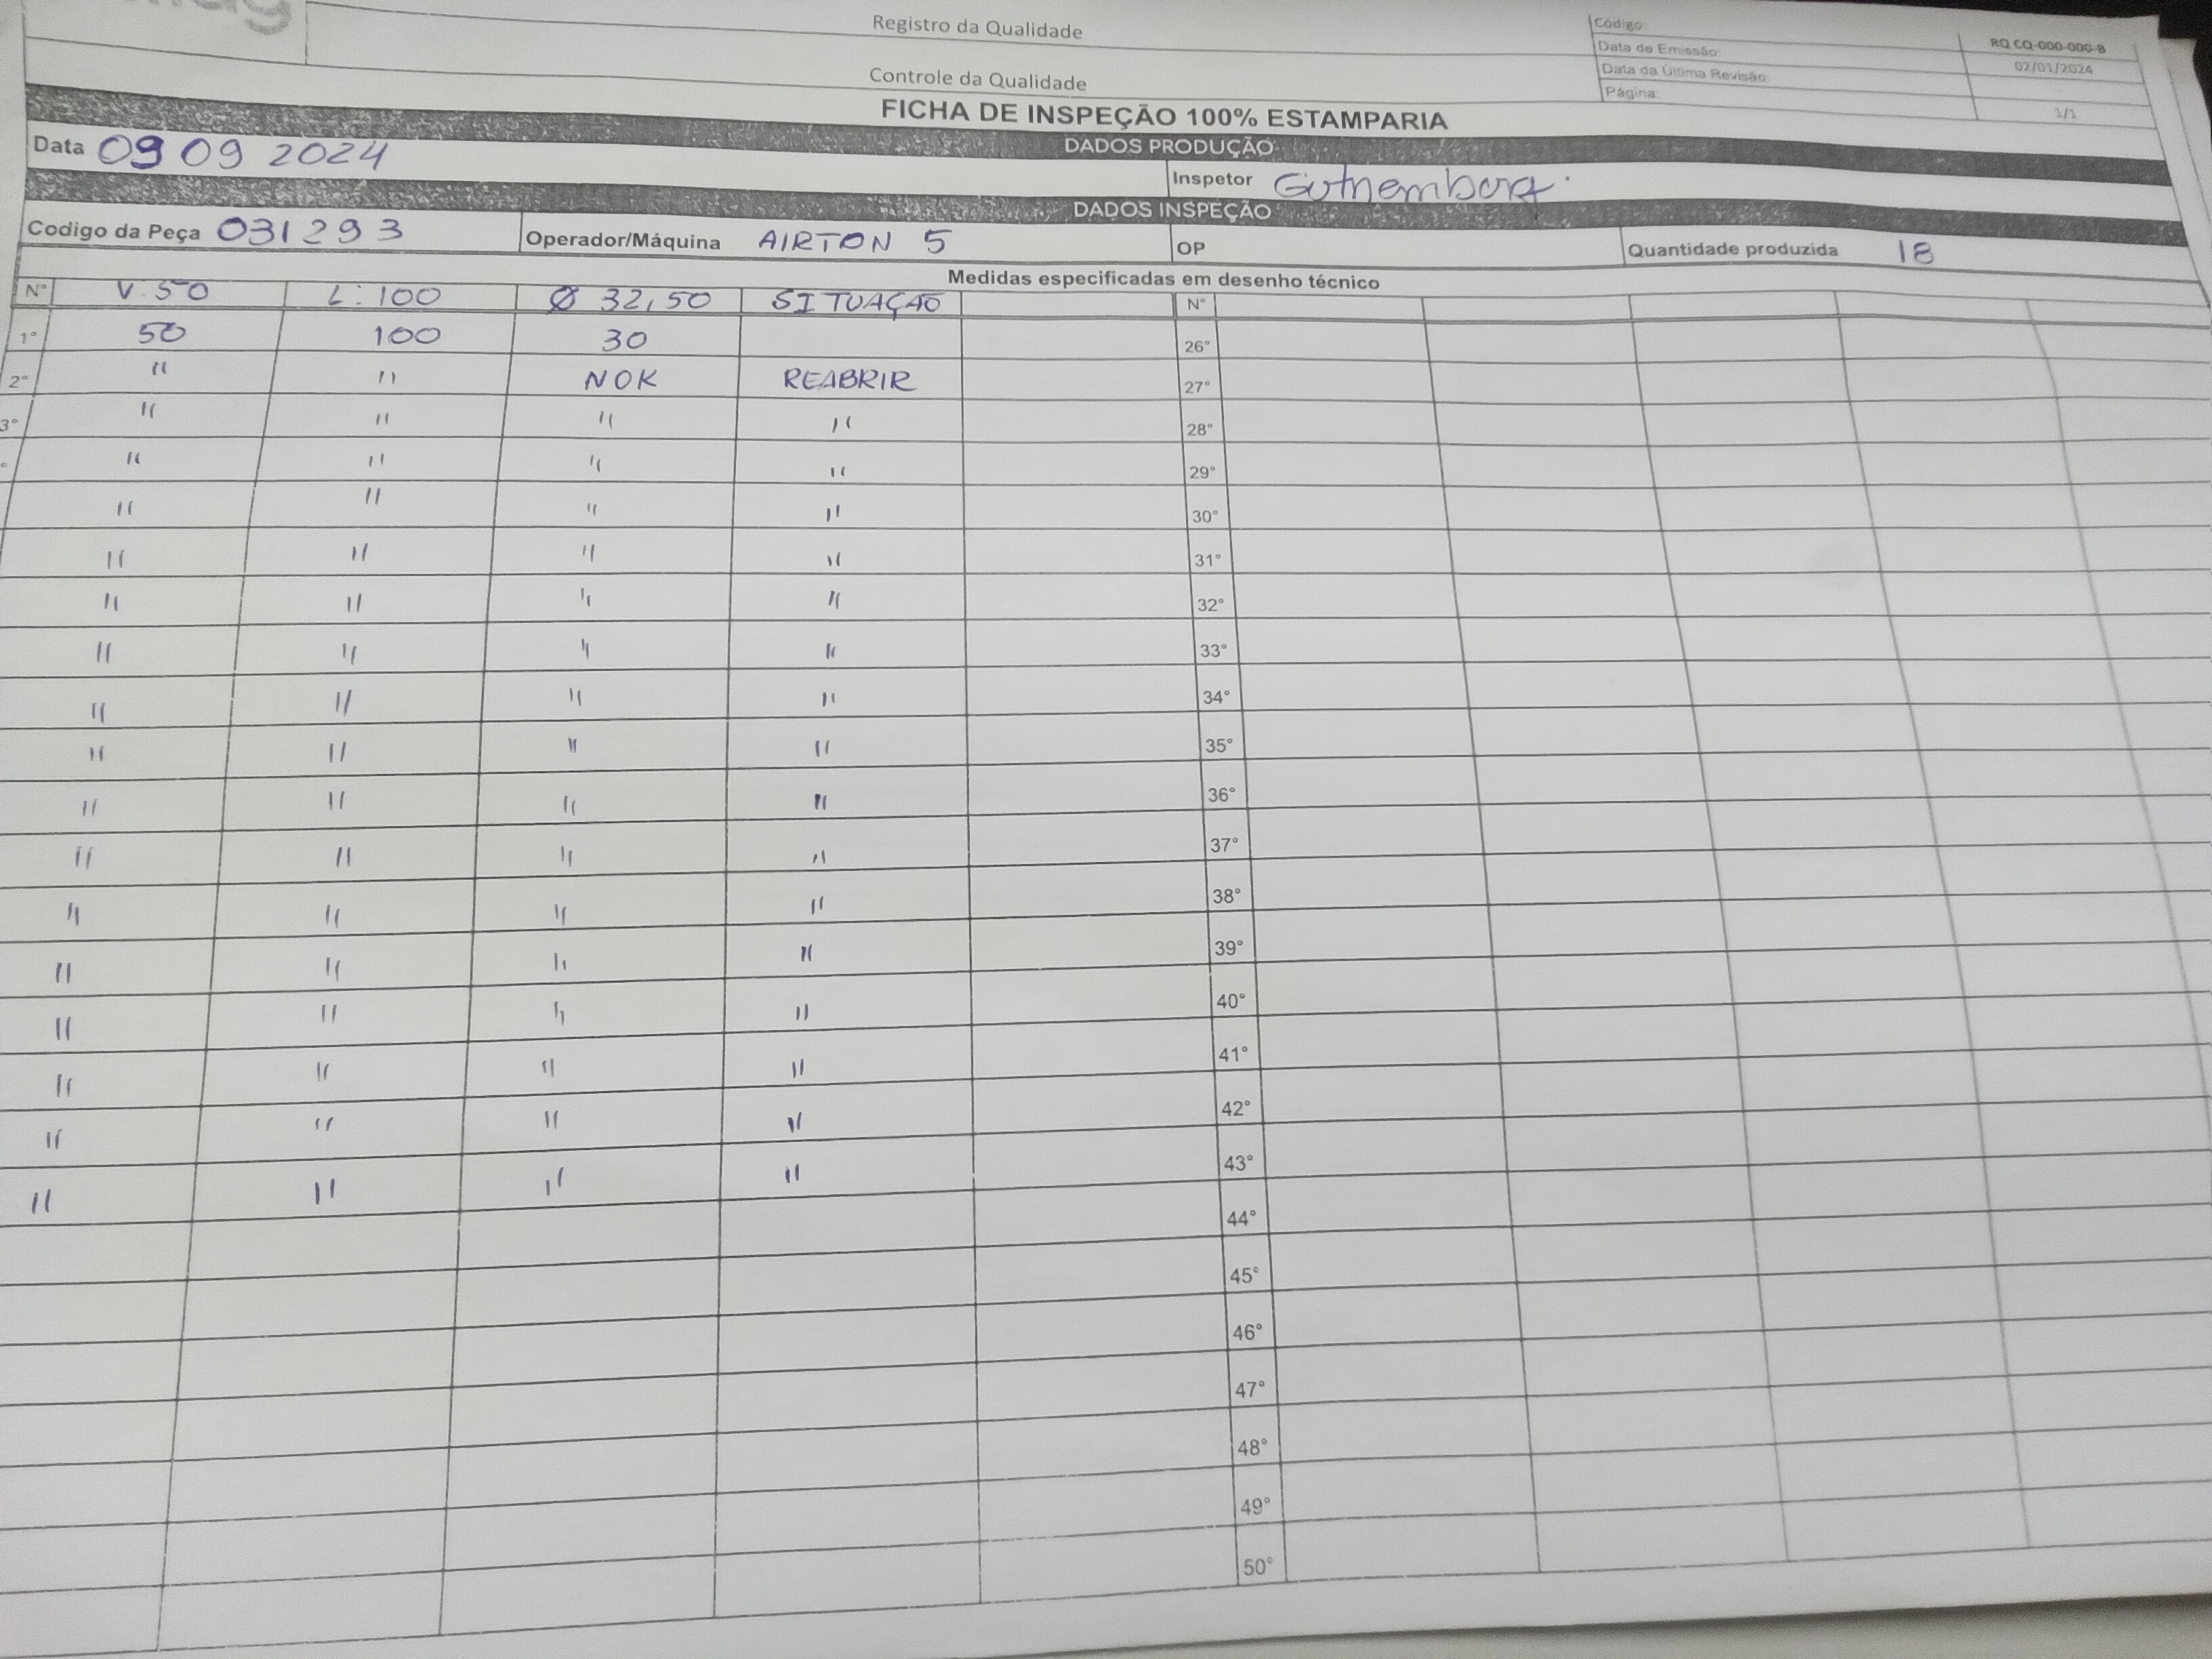 Registro da Qualidade
Controle da Qualidade
Código: RQ CQ-000-000-B
Data de Emissão: 02/01/2024
Data da Última Revisão: -
Página: 1/1
FICHA DE INSPEÇÃO 100% ESTAMPARIA
DADOS PRODUÇÃO
Data 09 09 2024 Inspetor Gutnemberg.
DADOS INSPEÇÃO
Codigo da Peça 031293 Operador/Máquina AIRTON 5 OP Quantidade produzida 18
Medidas especificadas em desenho técnico
N° V:50 L:100 Ø 32,50 SITUAÇÃO N°
1° 50 100 30 26°
2° " " NOK REABRIR 27°
3° " " " " 28°
° " " " " 29°
" " " " 30°
" " " " 31°
" " " " 32°
" " " " 33°
" " " " 34°
" " " " 35°
" " " " 36°
" " " " 37°
" " " " 38°
" " " " 39°
" " " " 40°
" " " " 41°
" " " " 42°
" " " " 43°
44°
45°
46°
47°
48°
49°
50°